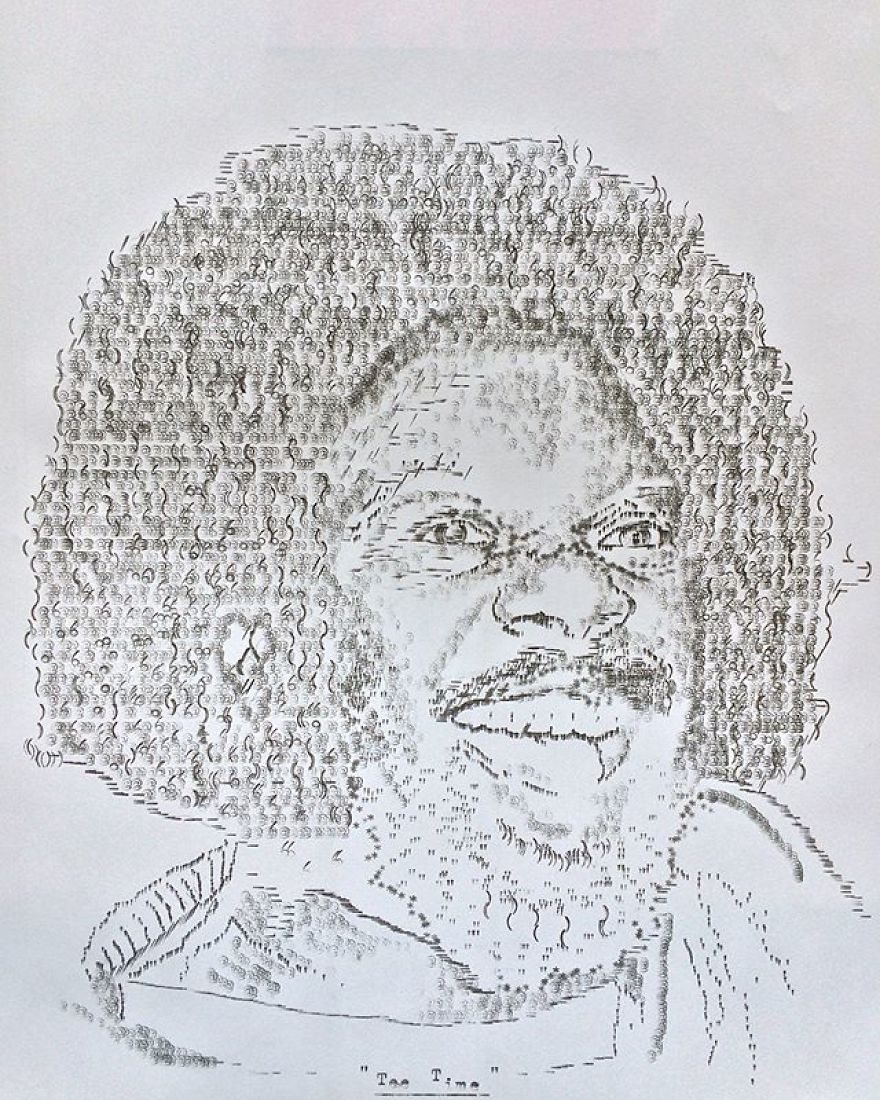 "Tee Time"